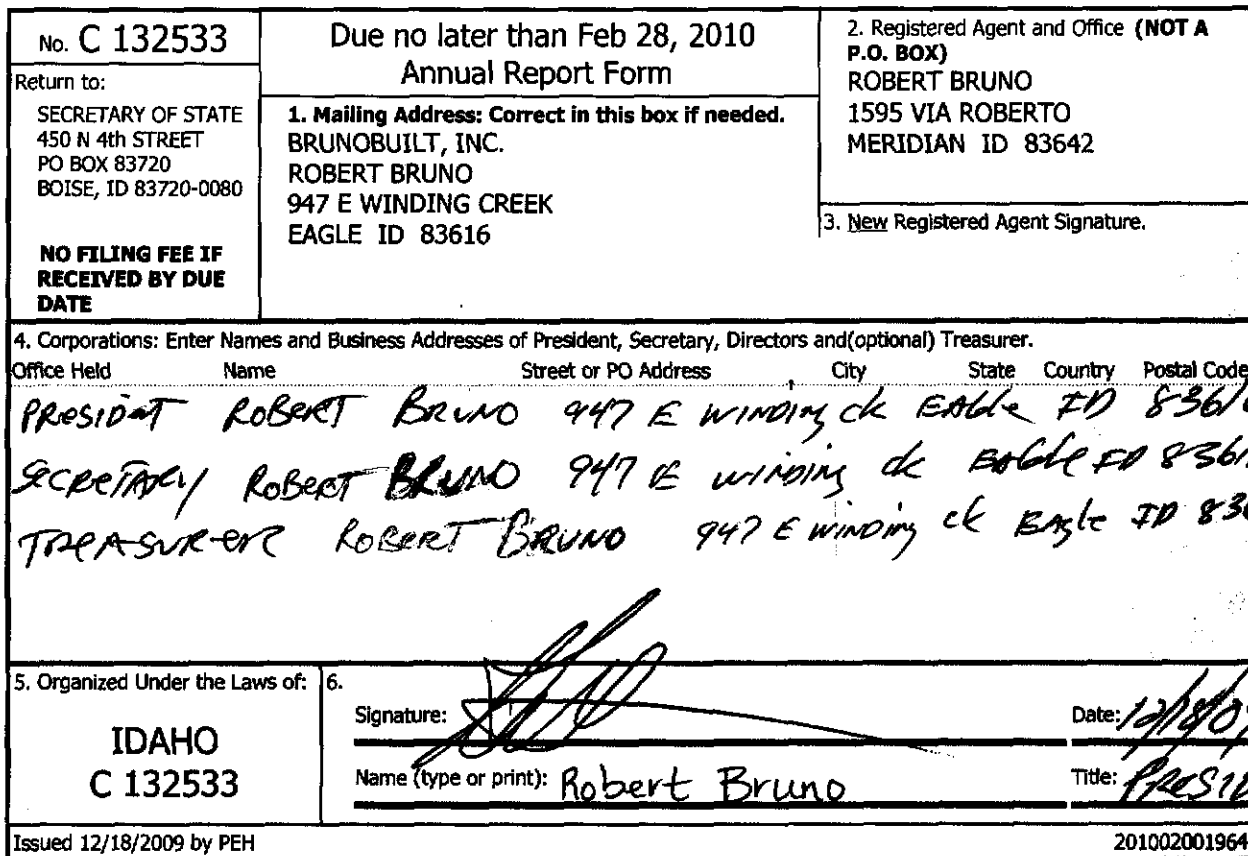 No. C 132533
Return to:
SECRETARY OF STATE
450 N 4th STREET
PO BOX 83720
BOISE, ID 83720-0080
NO FILING FEE IF
RECEIVED BY DUE
DATE
Due no later than Feb 28, 2010
Annual Report Form
1. Mailing Address: Correct in this box if needed.
BRUNOBUILT, INC.
ROBERT BRUNO
947 E WINDING CREEK
EAGLE ID 83616
2. Registered Agent and Office (NOT A
P.O. BOX)
ROBERT BRUNO
1595 VIA ROBERTO
MERIDIAN ID 83642
3. New Registered Agent Signature.
4. Corporations: Enter Names and Business Addresses of President, Secretary, Directors and(optional) Treasurer.
Office Held Name Street or PO Address City State Country Postal Code
PRESIDENT ROBERT BRUNO 947 E WINDING CK EAGLE ID 8361
SECRETARY ROBERT BRUNO 947 E WINDING CK EAGLE ID 8361
TREASURER ROBERT BRUNO 947 E WINDING CK EAGLE ID 83
5. Organized Under the Laws of:
IDAHO
C 132533
6.
Signature:
Date: 12/18/0
Name (type or print): Robert Bruno
Title: PRESID
Issued 12/18/2009 by PEH
201002001964